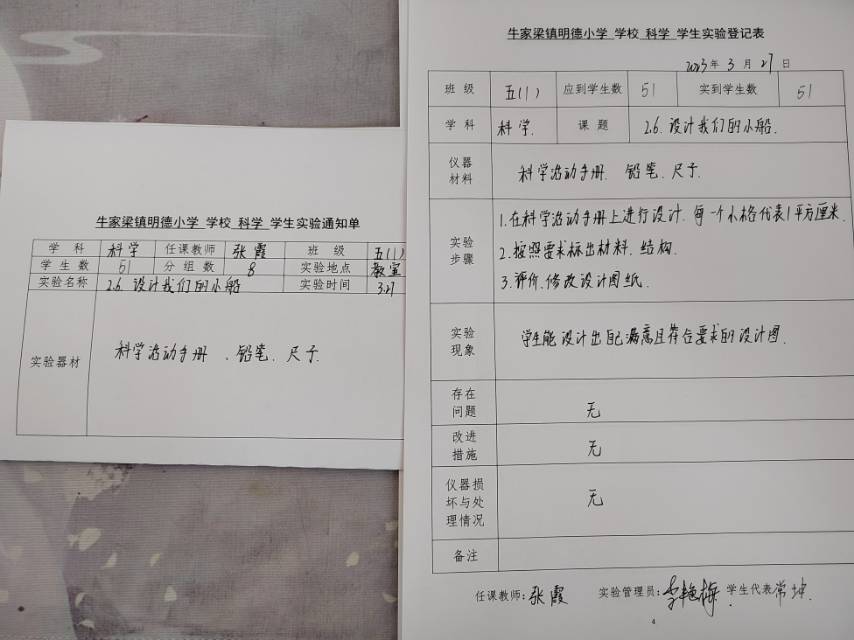 牛家梁镇明德小学 学校 科学 学生实验通知单
学 科 科学 任课教师 张霞 班 级 五(1)
学 生 数 51 分 组 数 8 实验地点 教室
实验名称 2.6 设计我们的小船 实验时间 3.27
实验器材 科学活动手册、铅笔、尺子.
牛家梁镇明德小学 学校 科学 学生实验登记表
2023年 3 月 27 日
班 级 五(1) 应到学生数 51 实到学生数 51
学 科 科学. 课 题 2.6.设计我们的小船.
仪器
材料
科学活动手册. 铅笔、尺子.
实验
步骤
1.在科学活动手册上进行设计.每一个小格代表1平方厘米.
2.按照要求标出材料、结构.
3.评价、修改设计图纸.
实验
现象
学生能设计出自己满意且符合要求的设计图.
存在
问题
无
改进
措施
无
仪器损
坏与处
理情况
无
备注
任课教师:张霞 实验管理员:李艳梅. 学生代表 常坤.
4